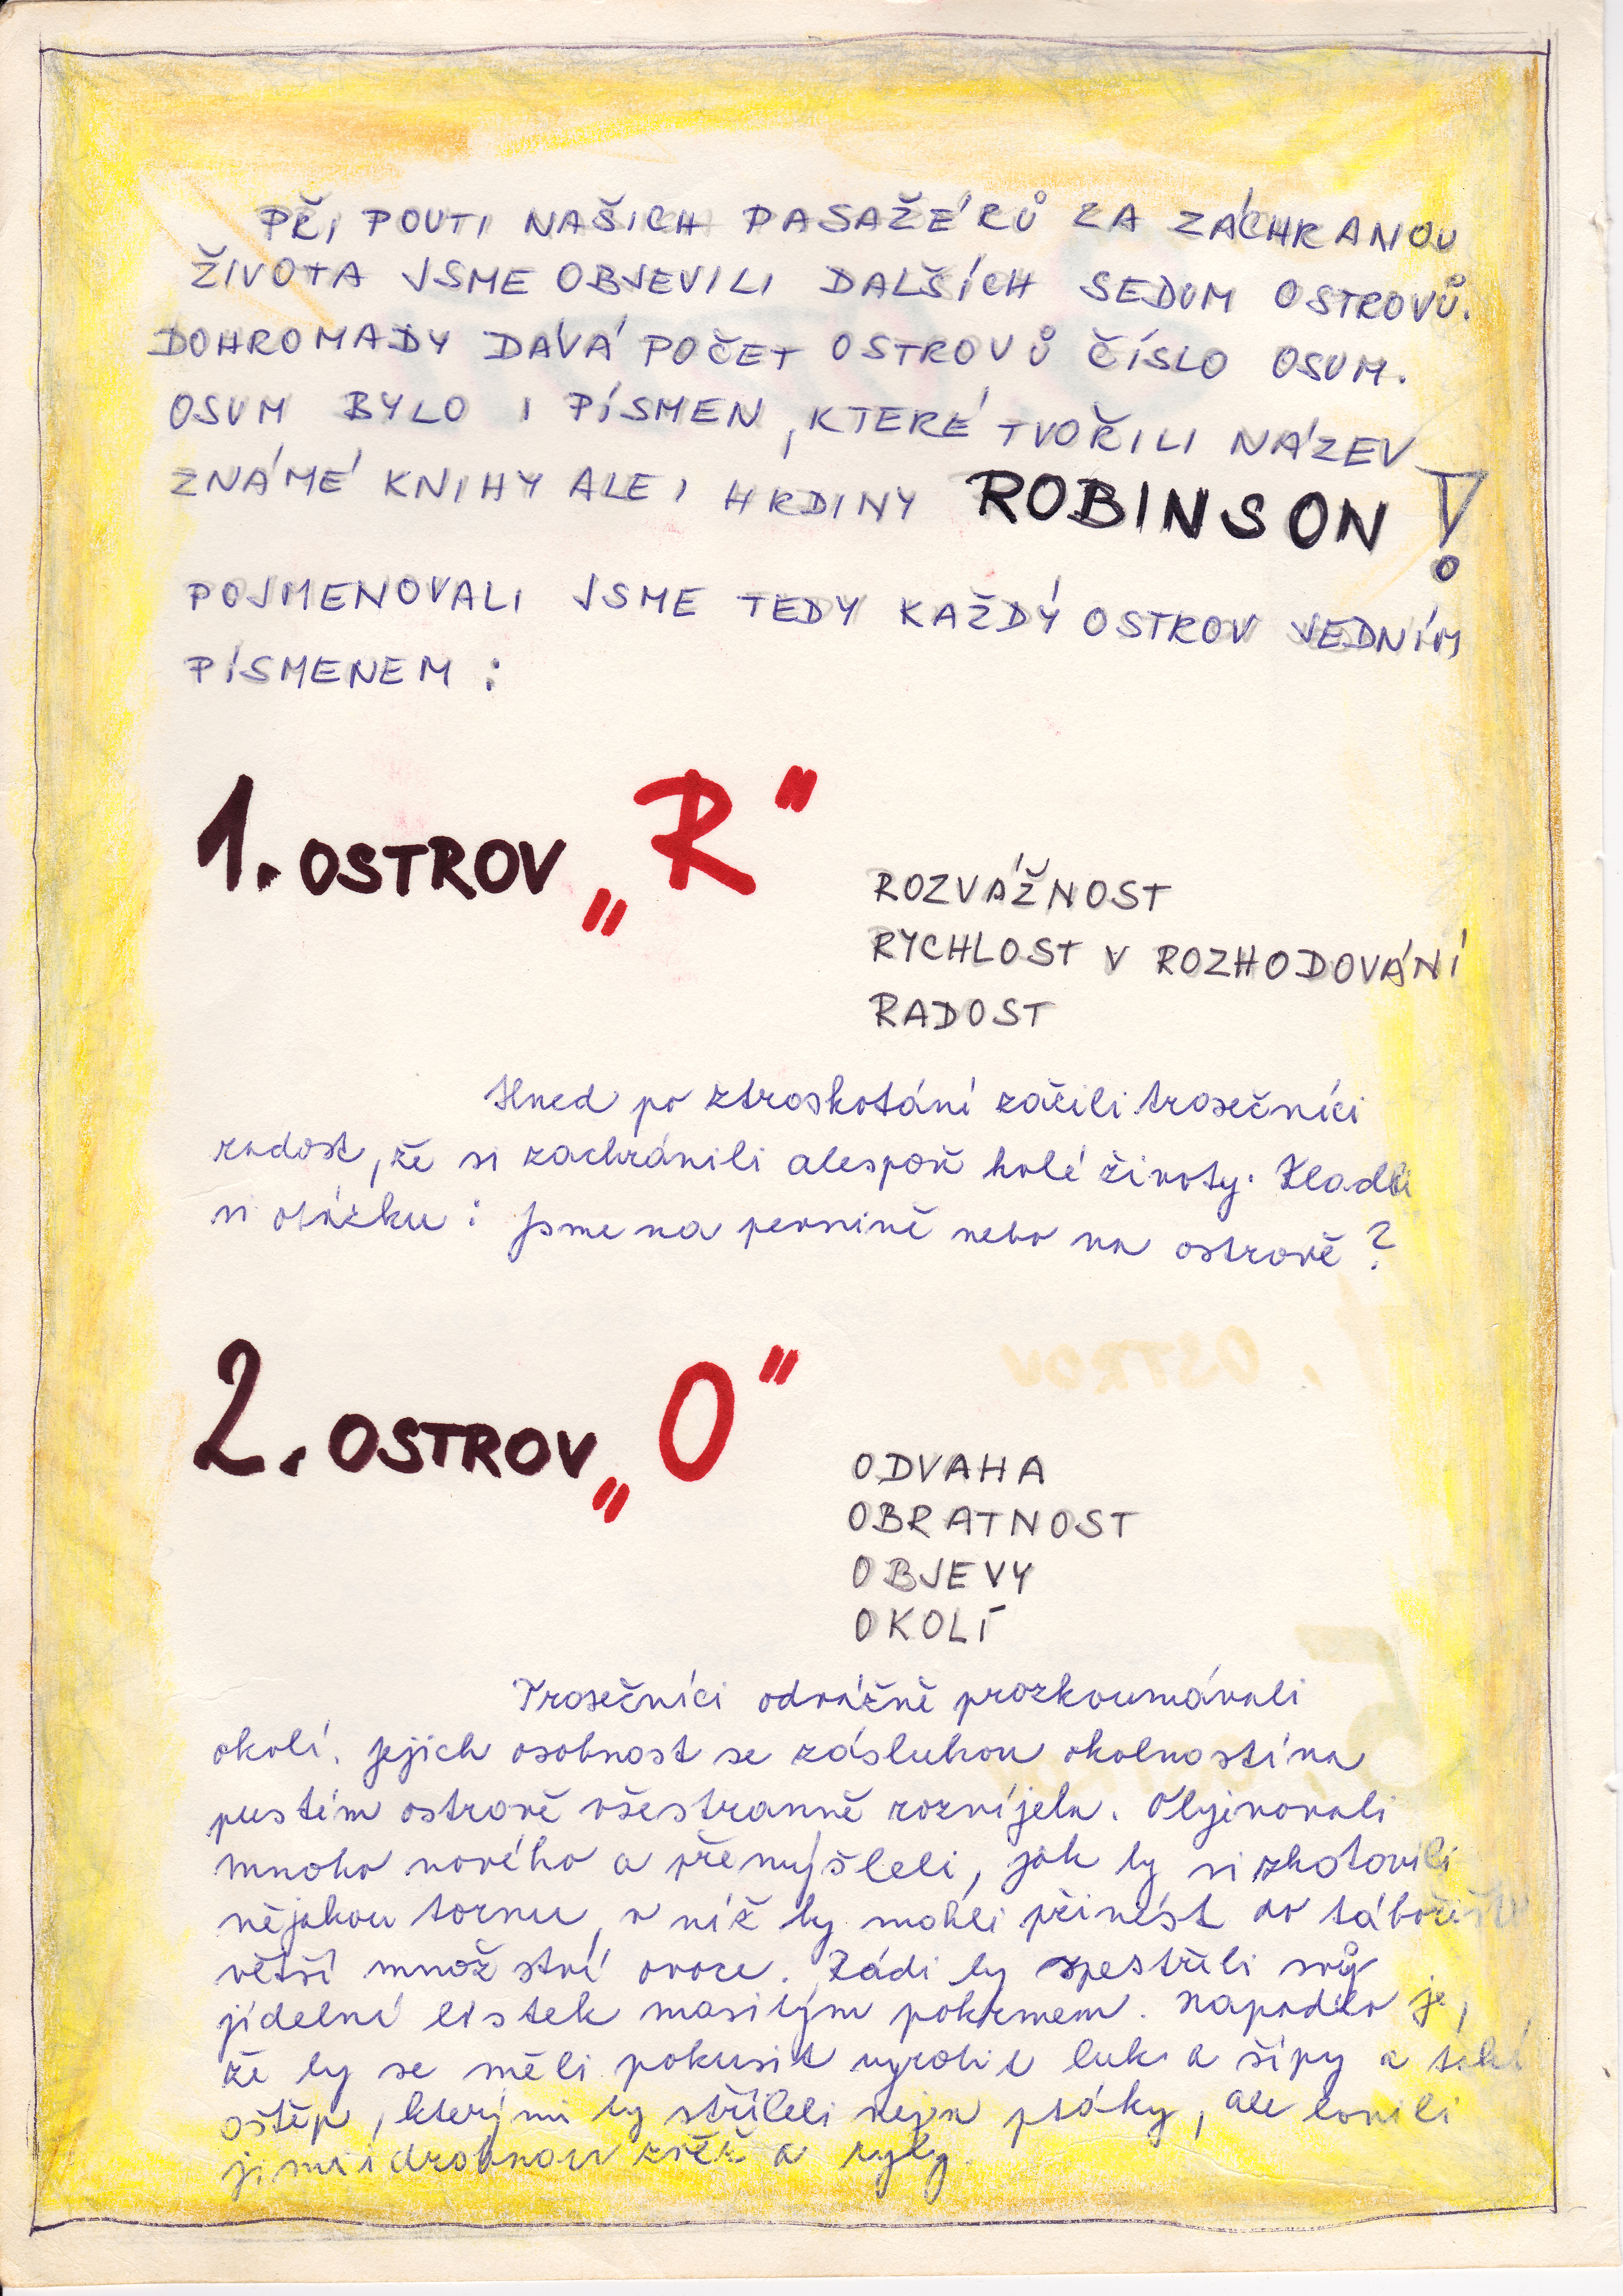 PŘI POUTI NAŠICH PASAŽÉRŮ ZA ZÁCHRANOU
ŽIVOTA JSME OBJEVILI DALŠÍCH SEDUM OSTROVŮ.
DOHROMADY DÁVÁ POČET OSTROVŮ ČÍSLO OSUM.
OSUM BYLO I PÍSMEN, KTERÉ TVOŘILI NÁZEV
ZNÁMÉ KNIHY ALE I HRDINY ROBINSON!
POJMENOVALI JSME TEDY KAŽDÝ OSTROV JEDNÍM
PÍSMENEM:
1. OSTROV „R"
ROZVÁŽNOST
RYCHLOST V ROZHODOVÁNÍ
RADOST
Hned po ztroskotání zažili trosečníci
radost, že si zachránili alespoň holé životy. Kladli
si otázku: Jsme na pevnině nebo na ostrově?
2. OSTROV „O"
ODVAHA
OBRATNOST
OBJEVY
OKOLÍ
Trosečníci odvážně prozkoumávali
okolí. Jejich osobnost se zásluhou okolností na
pustém ostrově všestranně rozvíjela. Objevovali
mnoho nového a přemýšleli, jak by si zhotovili
nějakou tornu, v níž by mohli přinést do tábořiště
větší množství ovoce. Rádi by zpestřili svůj
jídelní lístek masitým pokrmem. Napadlo je,
že by se měli pokusit vyrobit luk a šípy a také
oštěp, kterými by stříleli nejen ptáky, ale lovili
jimi i drobnou zvěř a ryby.
OSTROV
5.